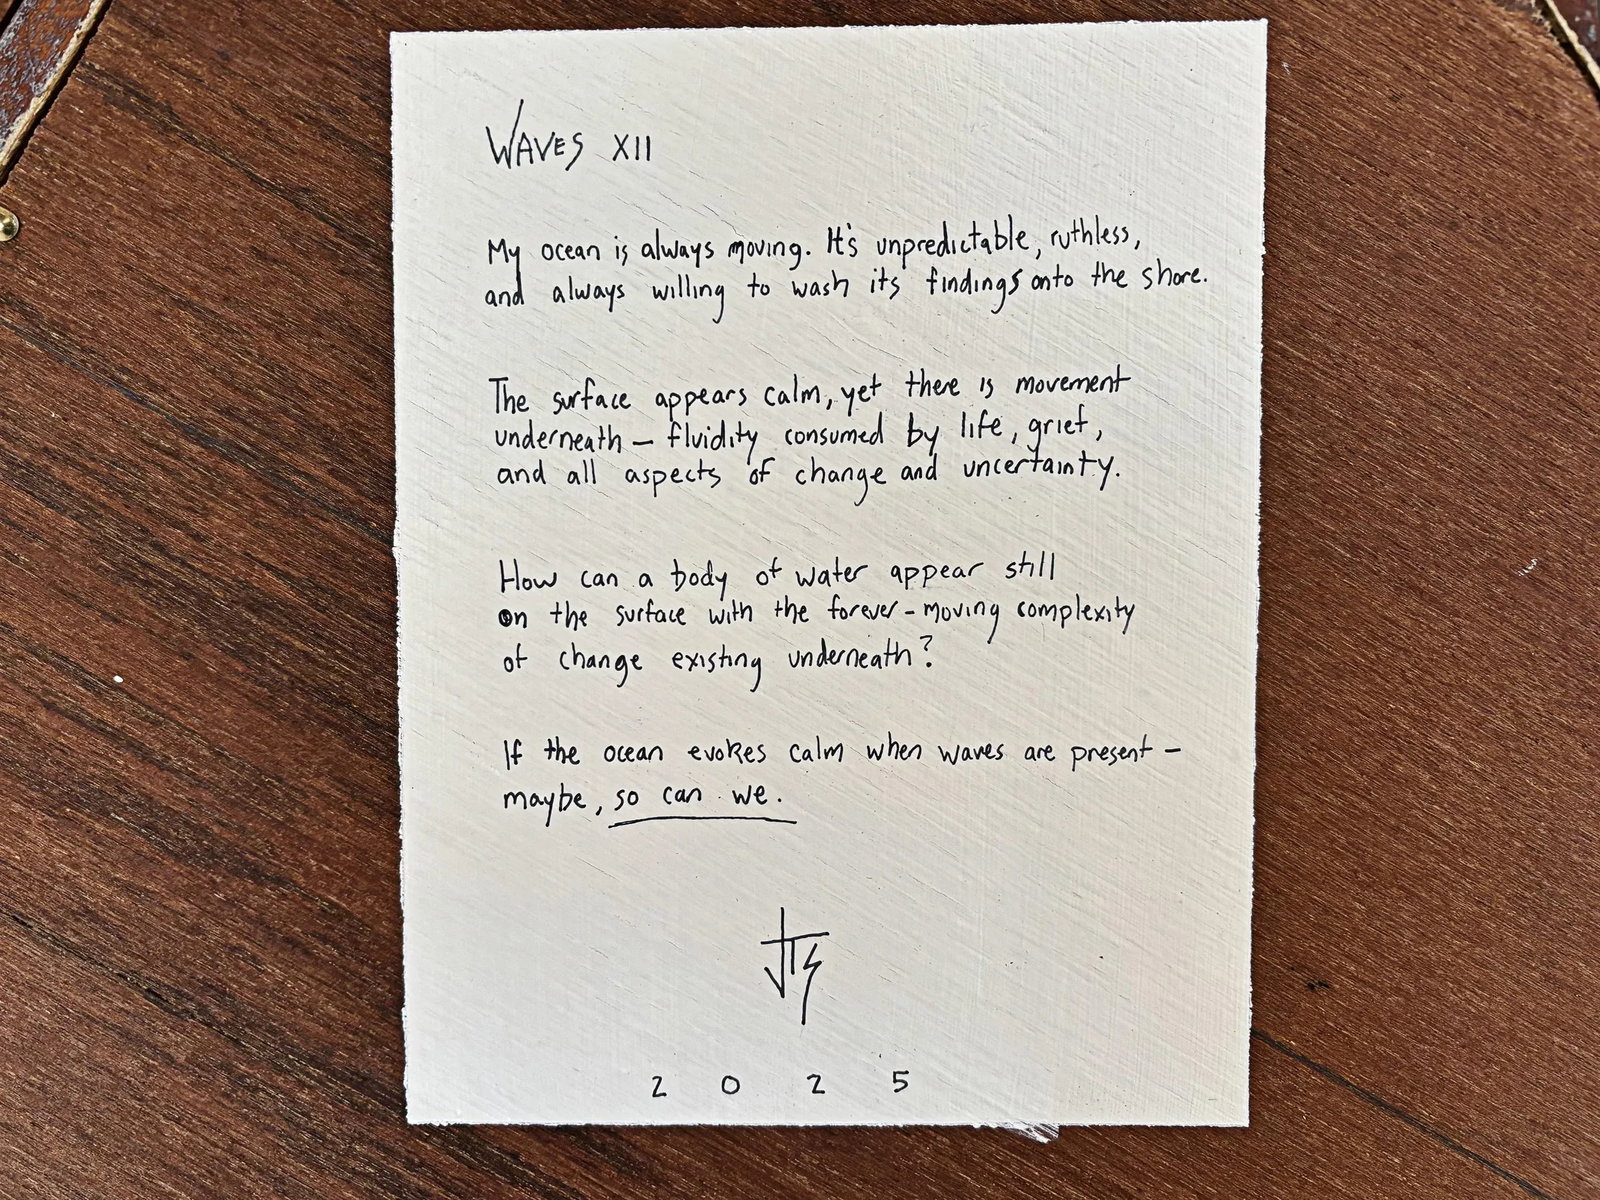 WAVES XII
My ocean is always moving. It's unpredictable, ruthless,
and always willing to wash its findings onto the shore.
The surface appears calm, yet there is movement
underneath — fluidity consumed by life, grief,
and all aspects of change and uncertainty.
How can a body of water appear still
on the surface with the forever-moving complexity
of change existing underneath?
If the ocean evokes calm when waves are present —
maybe, so can we.
2 0 2 5